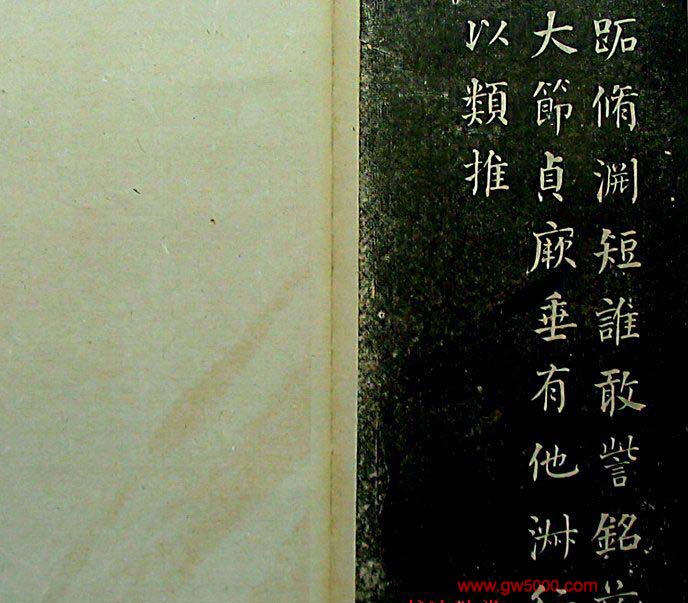 跖脩淵短誰敢訾銘
大節貞厥垂有他淑
以類推
www.gw5000.com